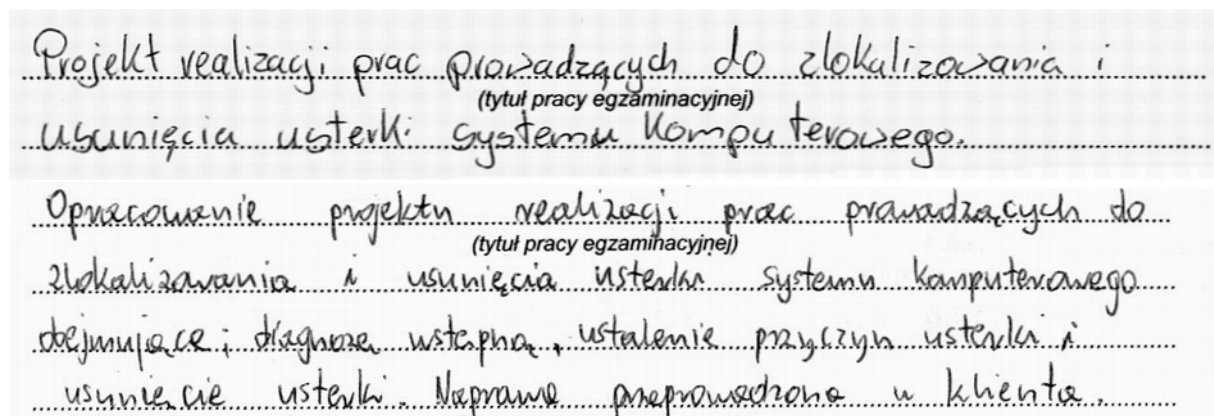 Projekt realizacji prac prowadzących do zlokalizowania i
(tytuł pracy egzaminacyjnej)
usunięcia usterki systemu komputerowego.
Opracowanie projektu realizacji prac prowadzących do
(tytuł pracy egzaminacyjnej)
zlokalizowania i usunięcia usterki systemu komputerowego
obejmujące: diagnozę wstępną, ustalenie przyczyn usterki i
usunięcie usterki. Naprawa przeprowadzona u klienta.